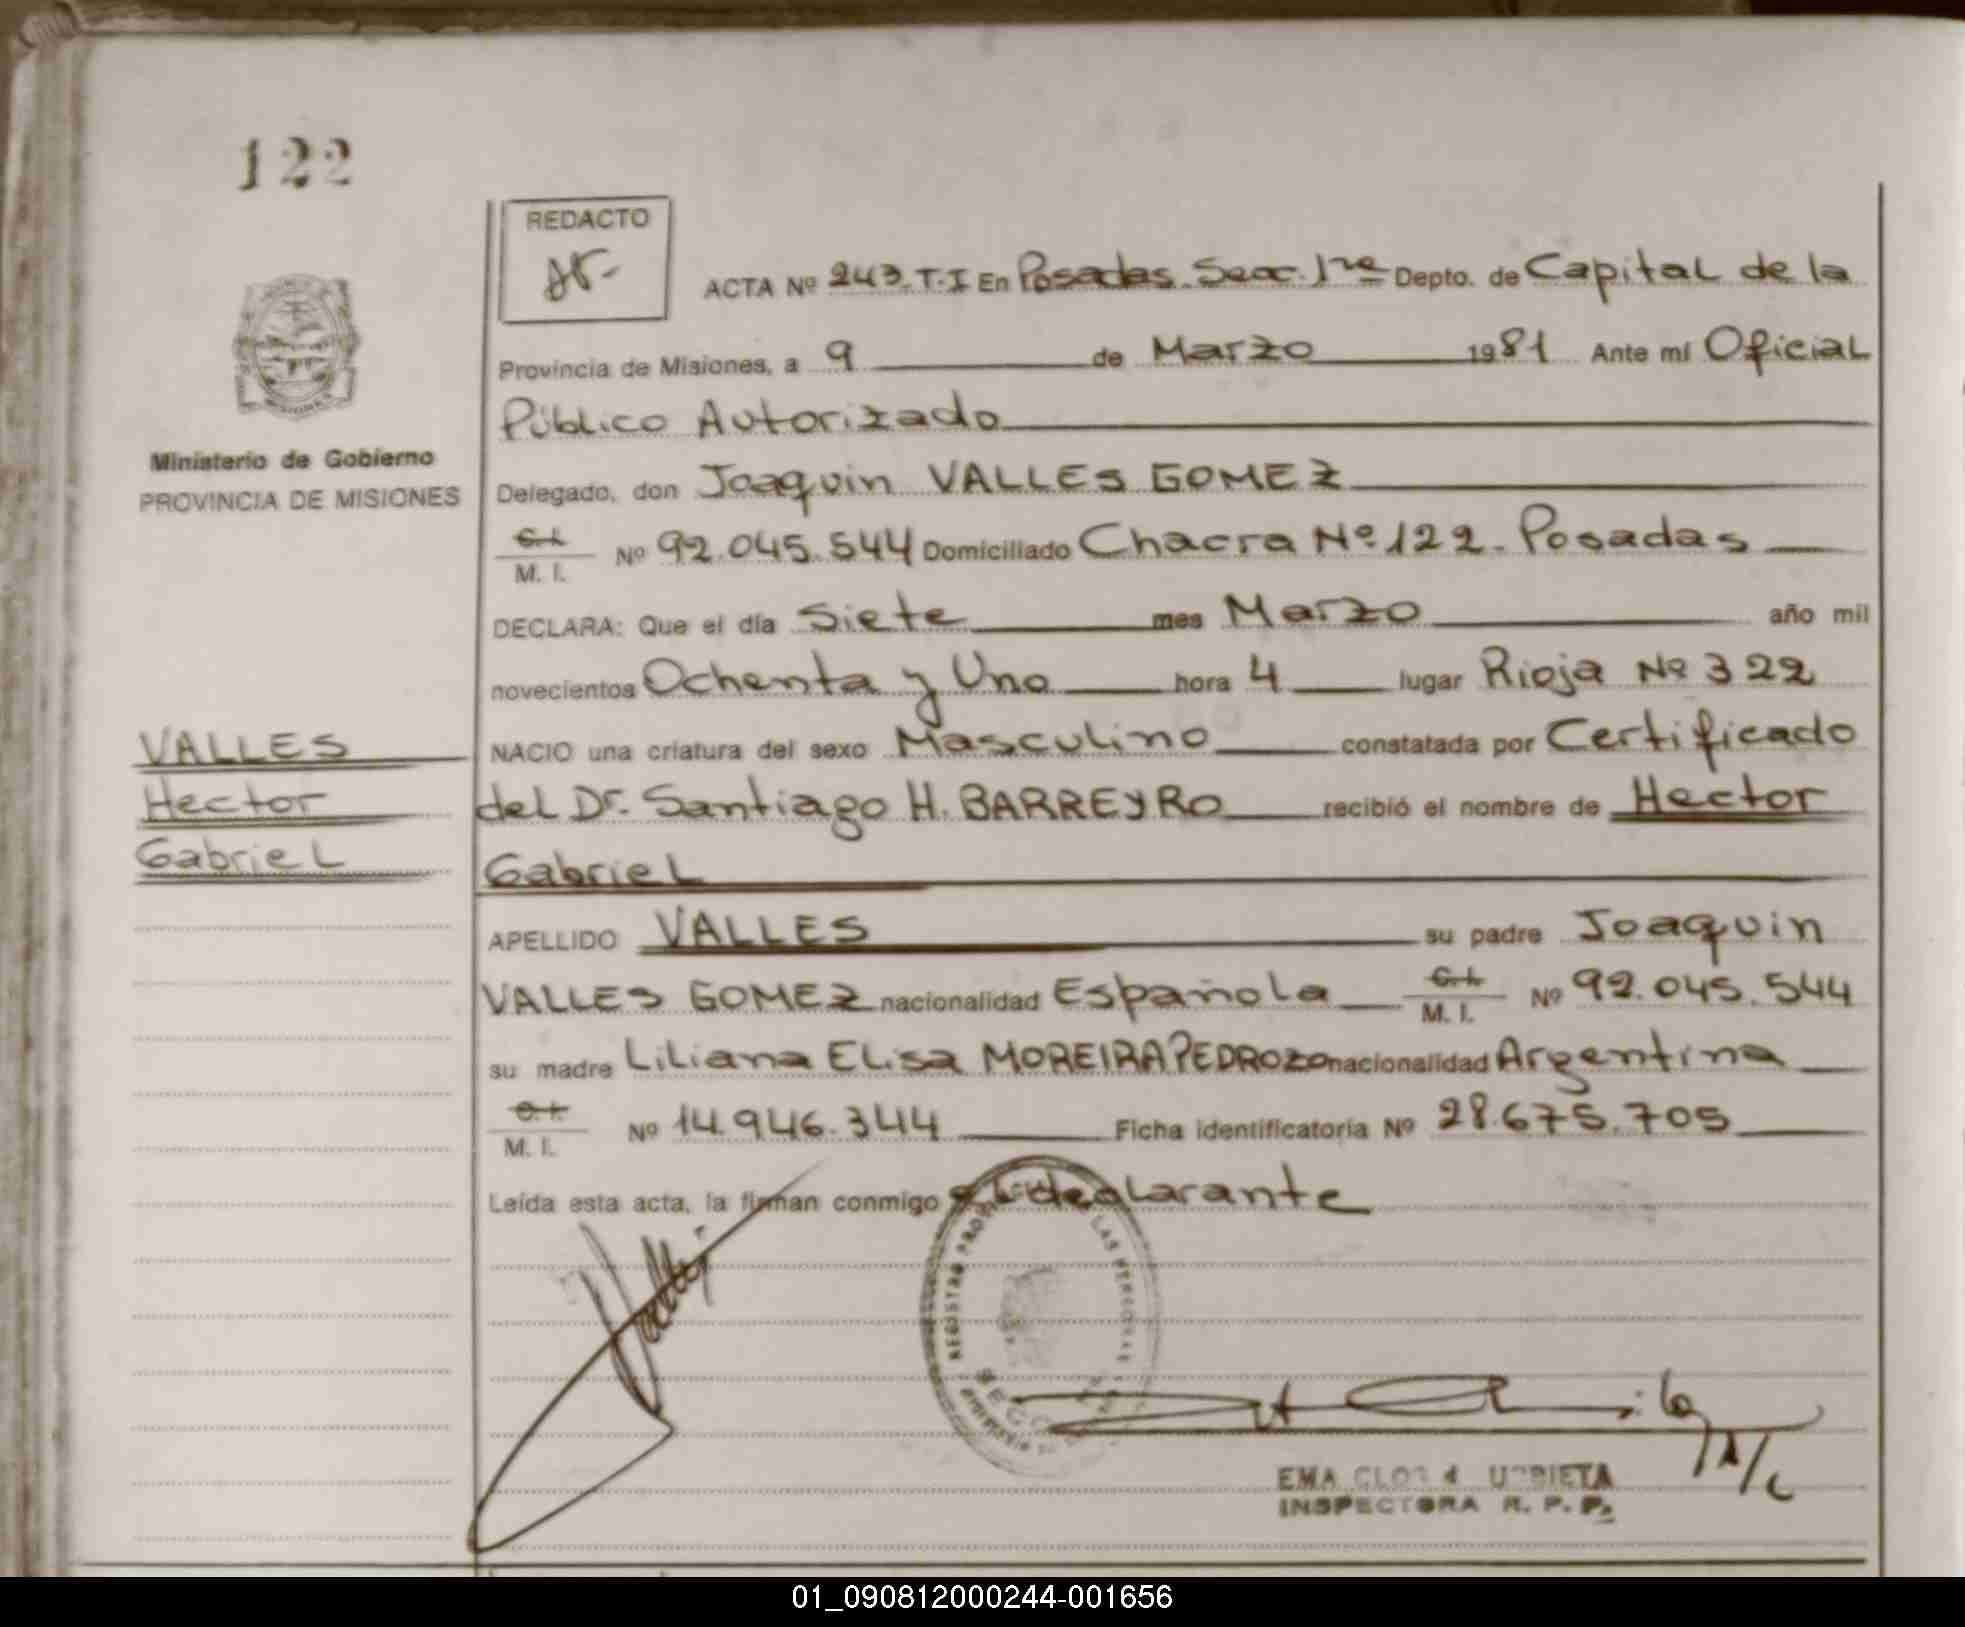 122
REDACTO
ACTA Nº 243. T-I En Posadas. Secc. 1ra Depto. de Capital de la
Provincia de Misiones, a 9 de Marzo 1981 Ante mí Oficial
Público Autorizado
Ministerio de Gobierno
PROVINCIA DE MISIONES
Delegado, don Joaquin VALLES GOMEZ
C.I. M. I. Nº 92.045.544 Domiciliado Chacra Nº 122. Posadas
DECLARA: Que el día Siete mes Marzo año mil
novecientos Ochenta y Uno hora 4 lugar Rioja Nº 322
VALLES
Hector
Gabriel
NACIO una criatura del sexo Masculino constatada por Certificado
del Dr. Santiago H. BARREYRO recibió el nombre de Hector
Gabriel
APELLIDO VALLES su padre Joaquin
VALLES GOMEZ nacionalidad Española C.I. M. I. Nº 92.045.544
su madre Liliana Elisa MOREIRA PEDROZO nacionalidad Argentina
C.I. M. I. Nº 14.946.344 Ficha identificatoria Nº 28.675.705
Leída esta acta, la firman conmigo el declarante
REGISTRO LAS PERSONAS
EMA URBIETA
INSPECTORA R. P. P.
01_090812000244-001656